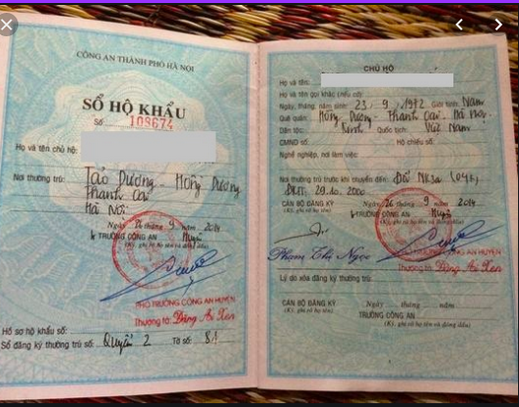 CÔNG AN THÀNH PHỐ HÀ NỘI
SỔ HỘ KHẨU
Số 108674
Họ và tên chủ hộ:
Nơi thường trú: Tảo Dương - Hồng Dương
Thanh Oai
Hà Nội
Ngày 26 tháng 9 năm 2014
TRƯỞNG CÔNG AN Huyện
(Ký, ghi rõ họ tên và đóng dấu)
PHÓ TRƯỞNG CÔNG AN HUYỆN
Thượng tá: Đặng
Hồ sơ hộ khẩu số:
Sổ đăng ký thường trú số: Quyển 2 Tờ số: 81
CHỦ HỘ
Họ và tên:
Họ và tên gọi khác (nếu có):
Ngày, tháng, năm sinh: 23 / 9 / 1972 Giới tính: Nam
Quê quán: Hồng Dương - Thanh Oai - Hà Nội
Dân tộc: Kinh Quốc tịch: Việt Nam
CMND số: Hộ chiếu số:
Nghề nghiệp, nơi làm việc:
Nơi thường trú trước khi chuyển đến:
29.10.2000
CÁN BỘ ĐĂNG KÝ Ngày 26 tháng 9 năm 2014
(Ký, ghi rõ họ tên) TRƯỞNG CÔNG AN Huyện
(Ký, ghi rõ họ tên và đóng dấu)
Phạm Thị Ngọc
PHÓ TRƯỞNG CÔNG AN HUYỆN
Thượng tá: Đặng
Lý do xóa đăng ký thường trú:
CÁN BỘ ĐĂNG KÝ Ngày tháng năm
(Ký, ghi rõ họ tên) TRƯỞNG CÔNG AN
(Ký, ghi rõ họ tên và đóng dấu)